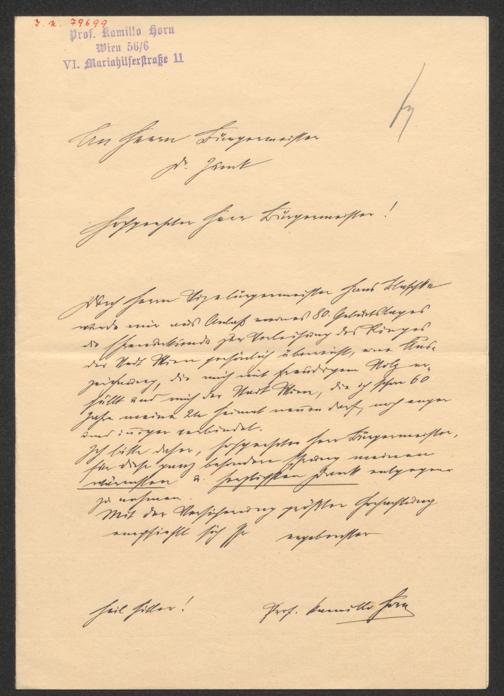 J. N. 79699
Prof. Kamillo Horn
Wien 56/6
VI. Mariahilferstraße 11
An Herrn Bürgermeister
Dr.
Hochgeehrter Herr Bürgermeister!
Durch Herrn Vizebürgermeister Hans Blaschke
wurde mir aus Anlaß meines 80. Geburtstages
die Ehrenurkunde zur Verleihung des Ringes
der Stadt Wien persönlich überreicht, eine Aus-
zeichnung, die mich mit freudigem Stolz er-
füllt und mich der Stadt Wien, die ich schon 60
Jahre meine 2te Heimat nennen darf, noch enger
und inniger verbindet.
Ich bitte daher, hochgeehrter Herr Bürgermeister,
für diese ganz besondere Ehrung meinen
wärmsten u. herzlichsten Dank entgegen
zu nehmen.
Mit der Versicherung größter Hochachtung
empfiehlt sich Ihr ergebenster
Heil Hitler! Prof. Kamillo Horn